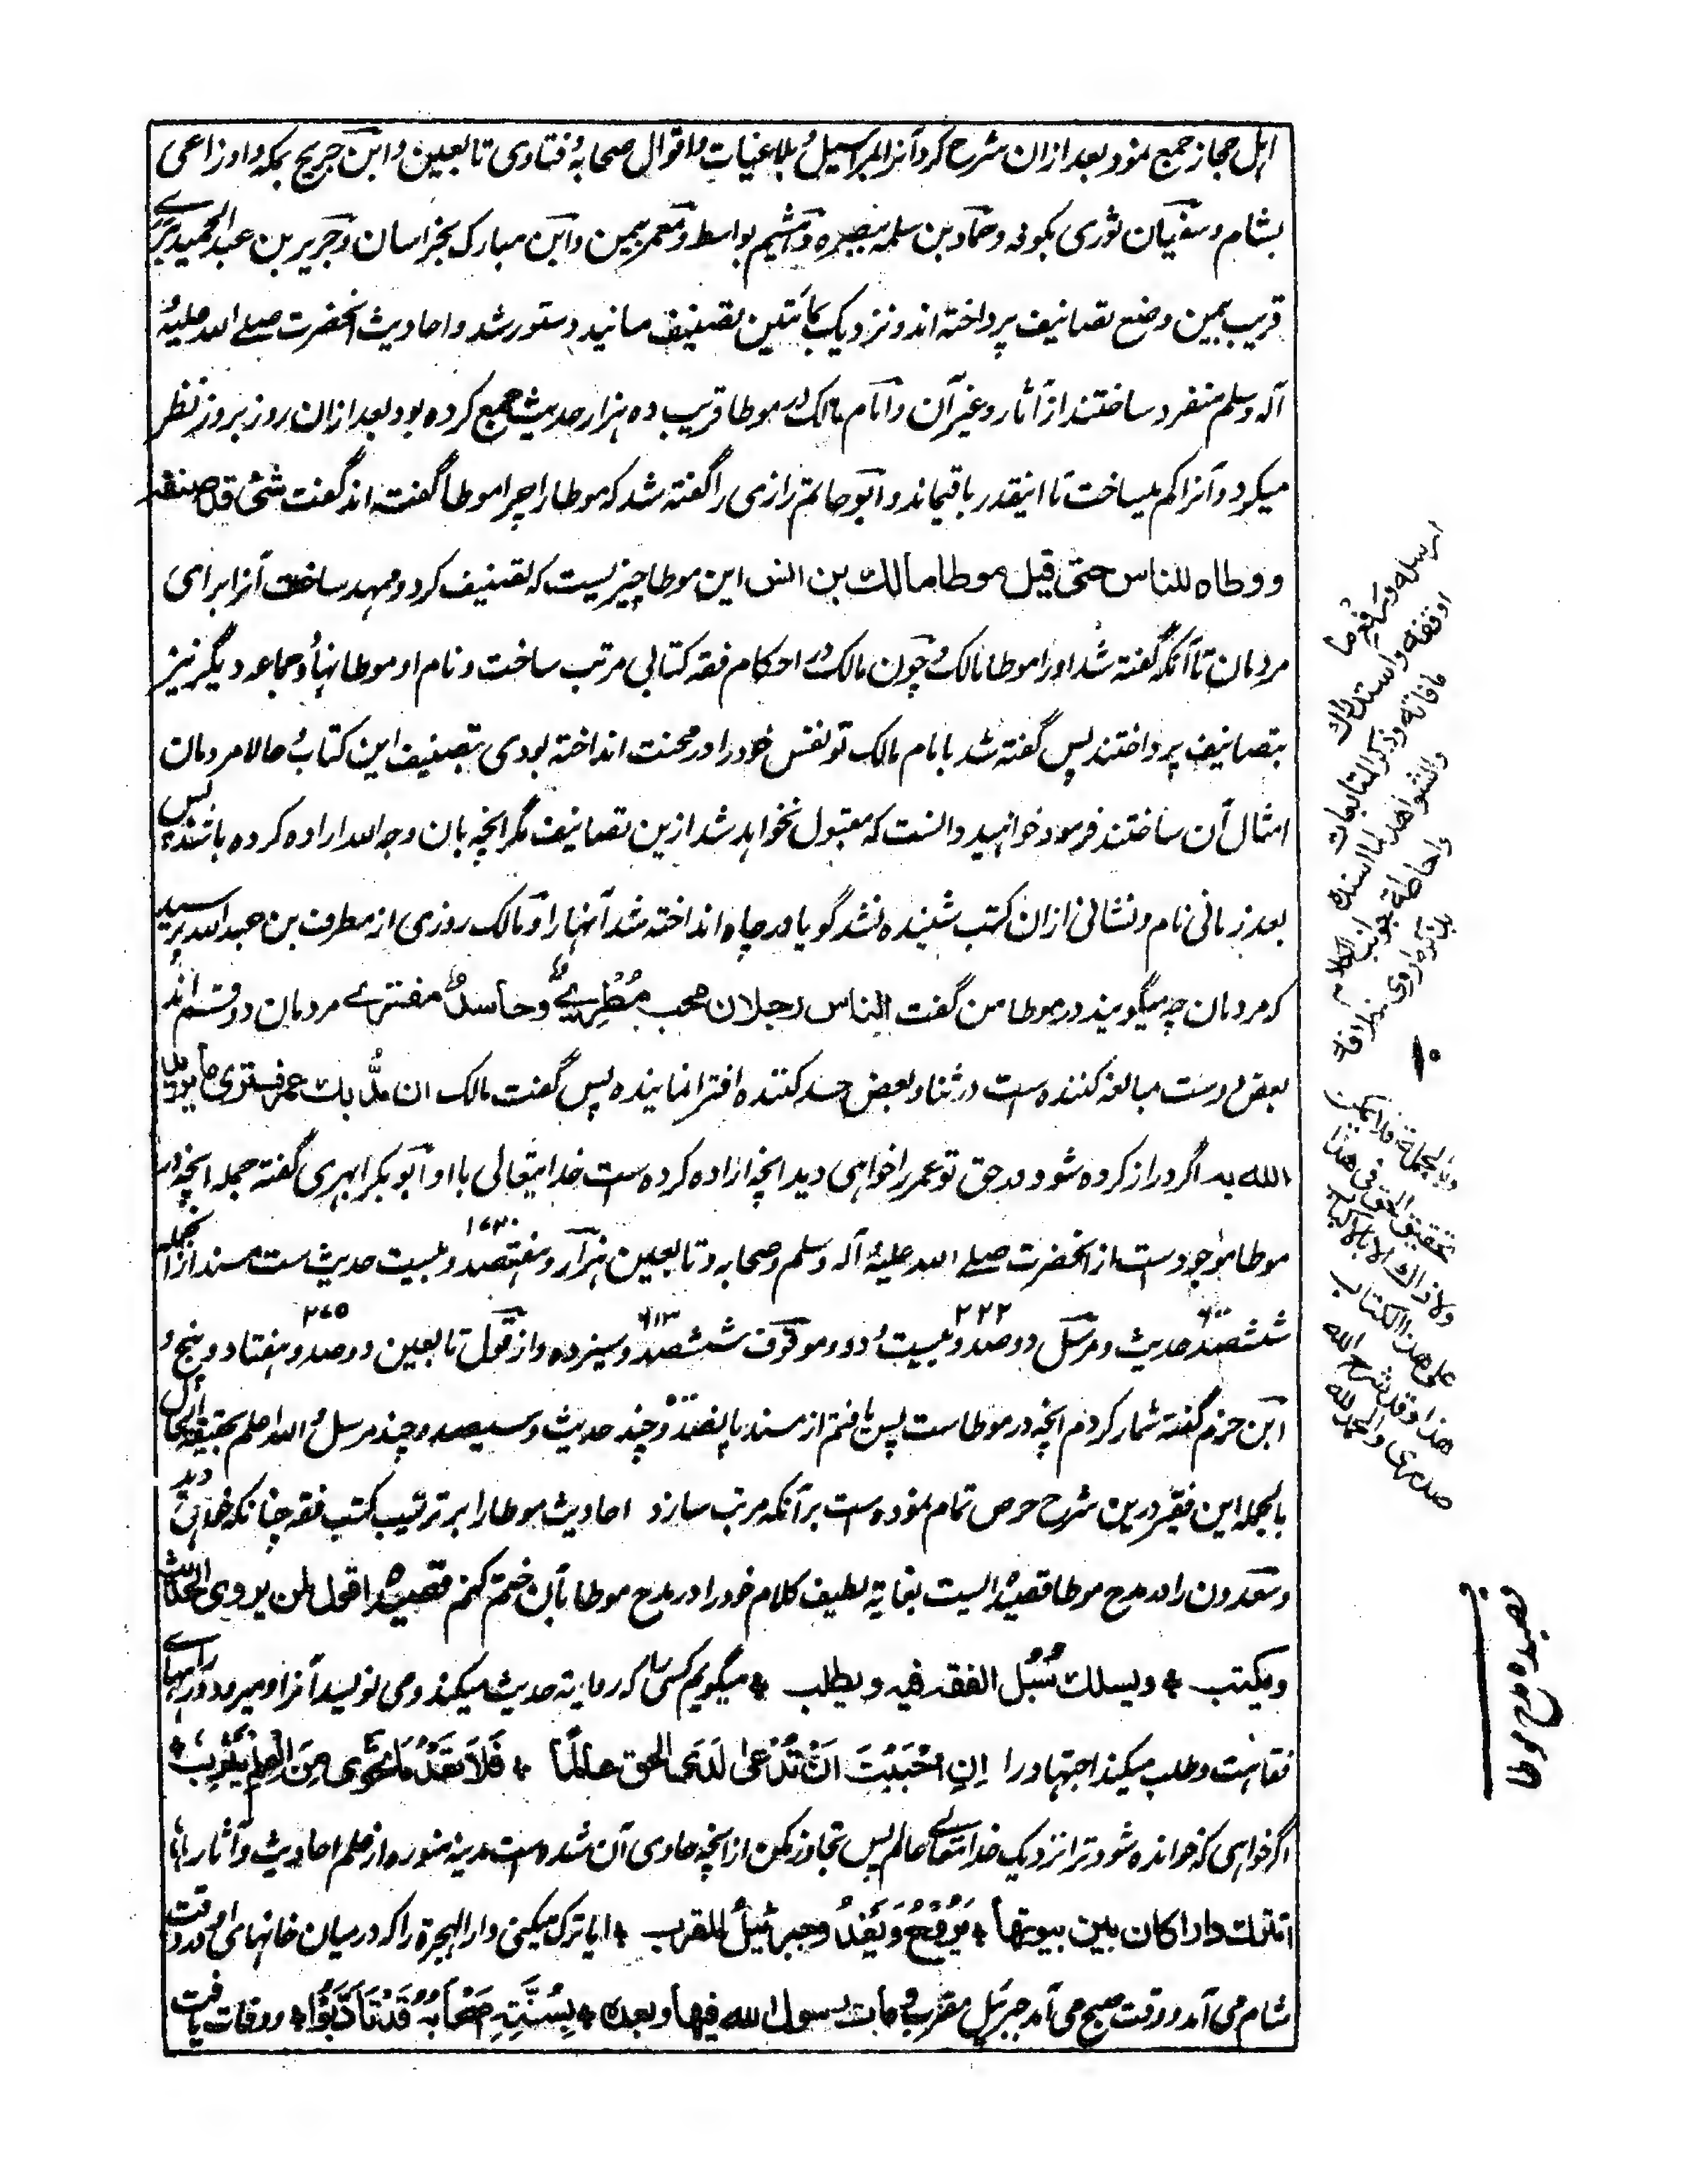 اہل حجاز جمع نمود بعد ازان شرح کرد آنرا بمراسیل و بلاغیات و اقوال صحابہ و فتاوی تابعین و ابن جریج بمکہ و اوزاعی
بشام و سفیان ثوری بکوفہ و حماد بن سلمہ ببصرہ و ہشیم بواسط و معمر بیمن و ابن مبارک بخراسان و جریر بن عبد الحمید برے
قریب بہمین وضع تصانیف پرداختہ اند و نزدیک بمأتین تصنیف مسانید دستور شد و احادیث آنحضرت صلے اللہ علیہ و
آلہ و سلم منفرد ساختند از آثار و غیر آن و امام مالک در موطا قریب دہ ہزار حدیث جمع کردہ بود بعد ازان روز بروز نظر
میکرد و آنرا کم میساخت تا اینقدر باقیماند و ابو حاتم رازی را گفتہ شد کہ موطا را چرا موطا گفتہ اند گفت شئ قد صنفہ
و وطاہ للناس حتی قیل موطا مالک بن انس این موطا چیزیست کہ تصنیف کرد و ممہد ساخت آنرا برای
مردمان تا آنکہ گفتہ شد اورا موطا مالک و چون مالک در احکام فقہ کتابی مرتب ساخت و نام او موطا نہاد جماعہ دیگر نیز
بتصانیف پرداختند پس گفتہ شد بامام مالک تو نفس خود را در محنت انداختہ بودی بتصنیف این کتاب و حالا مردمان
امثال آن ساختند فرمود خواہید دانست کہ مقبول نخواہد شد ازین تصانیف مگر آنچہ بان وجہ اللہ ارادہ کردہ باشند پس
بعد زمانی نام و نشانی ازان کتب شنیدہ نشد گویا در چاہ انداختہ شد آنہا را و مالک روزی از مطرف بن عبد اللہ پرسید
کہ مردمان چہ میگویند در موطا من گفت الناس رجلان محب مُطرِیٌ و حاسدٌ مفترے مردمان دو قسم اند
بعض دوست مبالغہ کنندہ است در ثنا و بعض حسد کنندہ افترا نمایندہ پس گفت مالک ان مُدَّ بک عمر فستری ما یرید
اللہ بہ اگر دراز کردہ شود در حق تو عمر را خواہی دید آنچہ ارادہ کردہ است خدایتعالی با او ابو بکر ابہری گفتہ جملہ آنچہ در
موطا موجودست از آنحضرت صلے اللہ علیہ و آلہ و سلم و صحابہ و تابعین ہزار و ہفتصد و بیست حدیث ست مسند ازانجملہ ۱۷۲۰
ششصد حدیث و مرسل دو صد و بیست و دو و موقوف ششصد و سیزدہ و از قول تابعین دو صد و ہفتاد و پنج و ۶۰۰ ۲۲۲ ۶۱۳ ۲۷۵
ابن حزم گفتہ شمار کردم آنچہ در موطاست پس یافتم از مسند پانصد و چند حدیث و سیصد و چند مرسل و اللہ اعلم بحقیقۃ الحال
بالجملہ این فقیر درین شرح حرص تمام نمودہ است بر آنکہ مرتب سازد احادیث موطا را بر ترتیب کتب فقہ چنانکہ خواہی دید
و سعدون را در مدح موطا قصیدہ ایست بغایۃ لطیف کلام خود را در مدح موطا بآن ختم کنم قصیدہ اقول لمن یروی الحدیث
و یکتب * و یسلک سُبُل الفقہ فیہ و یطلب * میگویم کسی را کہ روایۃ حدیث میکند و می نویسد آنرا و میرود در راہہاے
فقاہت و طلب میکند اجتہاد را اِنِ احْبَبْتَ اَنْ تُدْعیٰ لَدَی الحق عالمًا * فَلَا تَعْدُ مَا تَحْوِی مِنَ الْعِلْمِ یَثْرِبُ *
اگر خواہی کہ خواندہ شود ترا نزدیک خدایتعالے عالم پس تجاوز مکن از آنچہ حاوی آن شدہ است مدینہ منورہ از علم احادیث و آثار
اتترک دارا کان بین بیوتہا * یَرُوحُ وَ یَغْدُو جبرئیلُ المقرب * ایا ترک میکنی دار الہجرۃ را کہ درمیان خانہای او وقت
شام می آمد و وقت صبح می آمد جبرئیل مقرب و مات رسول اللہ فیہا و بعدہ * بِسُنَّتِہِ اَصْحَابُہُ قَدْ تَأَدَّبُوْا * و وفات یافت
ارسلہ و رفع ما
اوقفہ و استدراک
مافاتہ و ذکر المتابعات
والشواہد لما اسندہ
و احاطۃ جوانب الکلام
بذکر ما روی خلافہ
۱۰
و بالجملۃ فلا یمکن
تحقیق الحق فی ہذا
ولا ذاک الا بالاکباب
علی ہذا الکتاب
ہذا و قد شرح اللہ
صدری والحمد للہ
قصیدہ مدح موطا